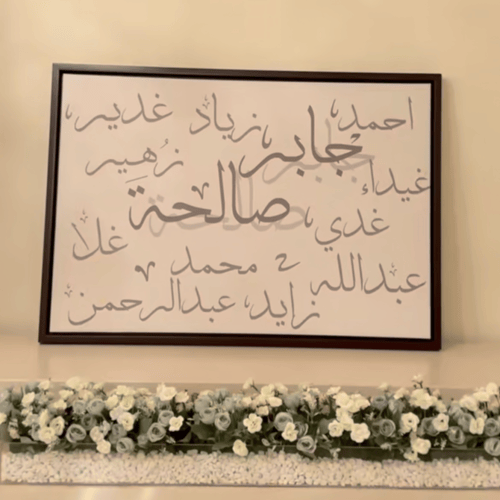 احمد، زياد، غدير،
جابر،
زُهير
غيداء
صالحة
غدي،
غلا
محمد
عبدالله
زايد، عبدالرحمن